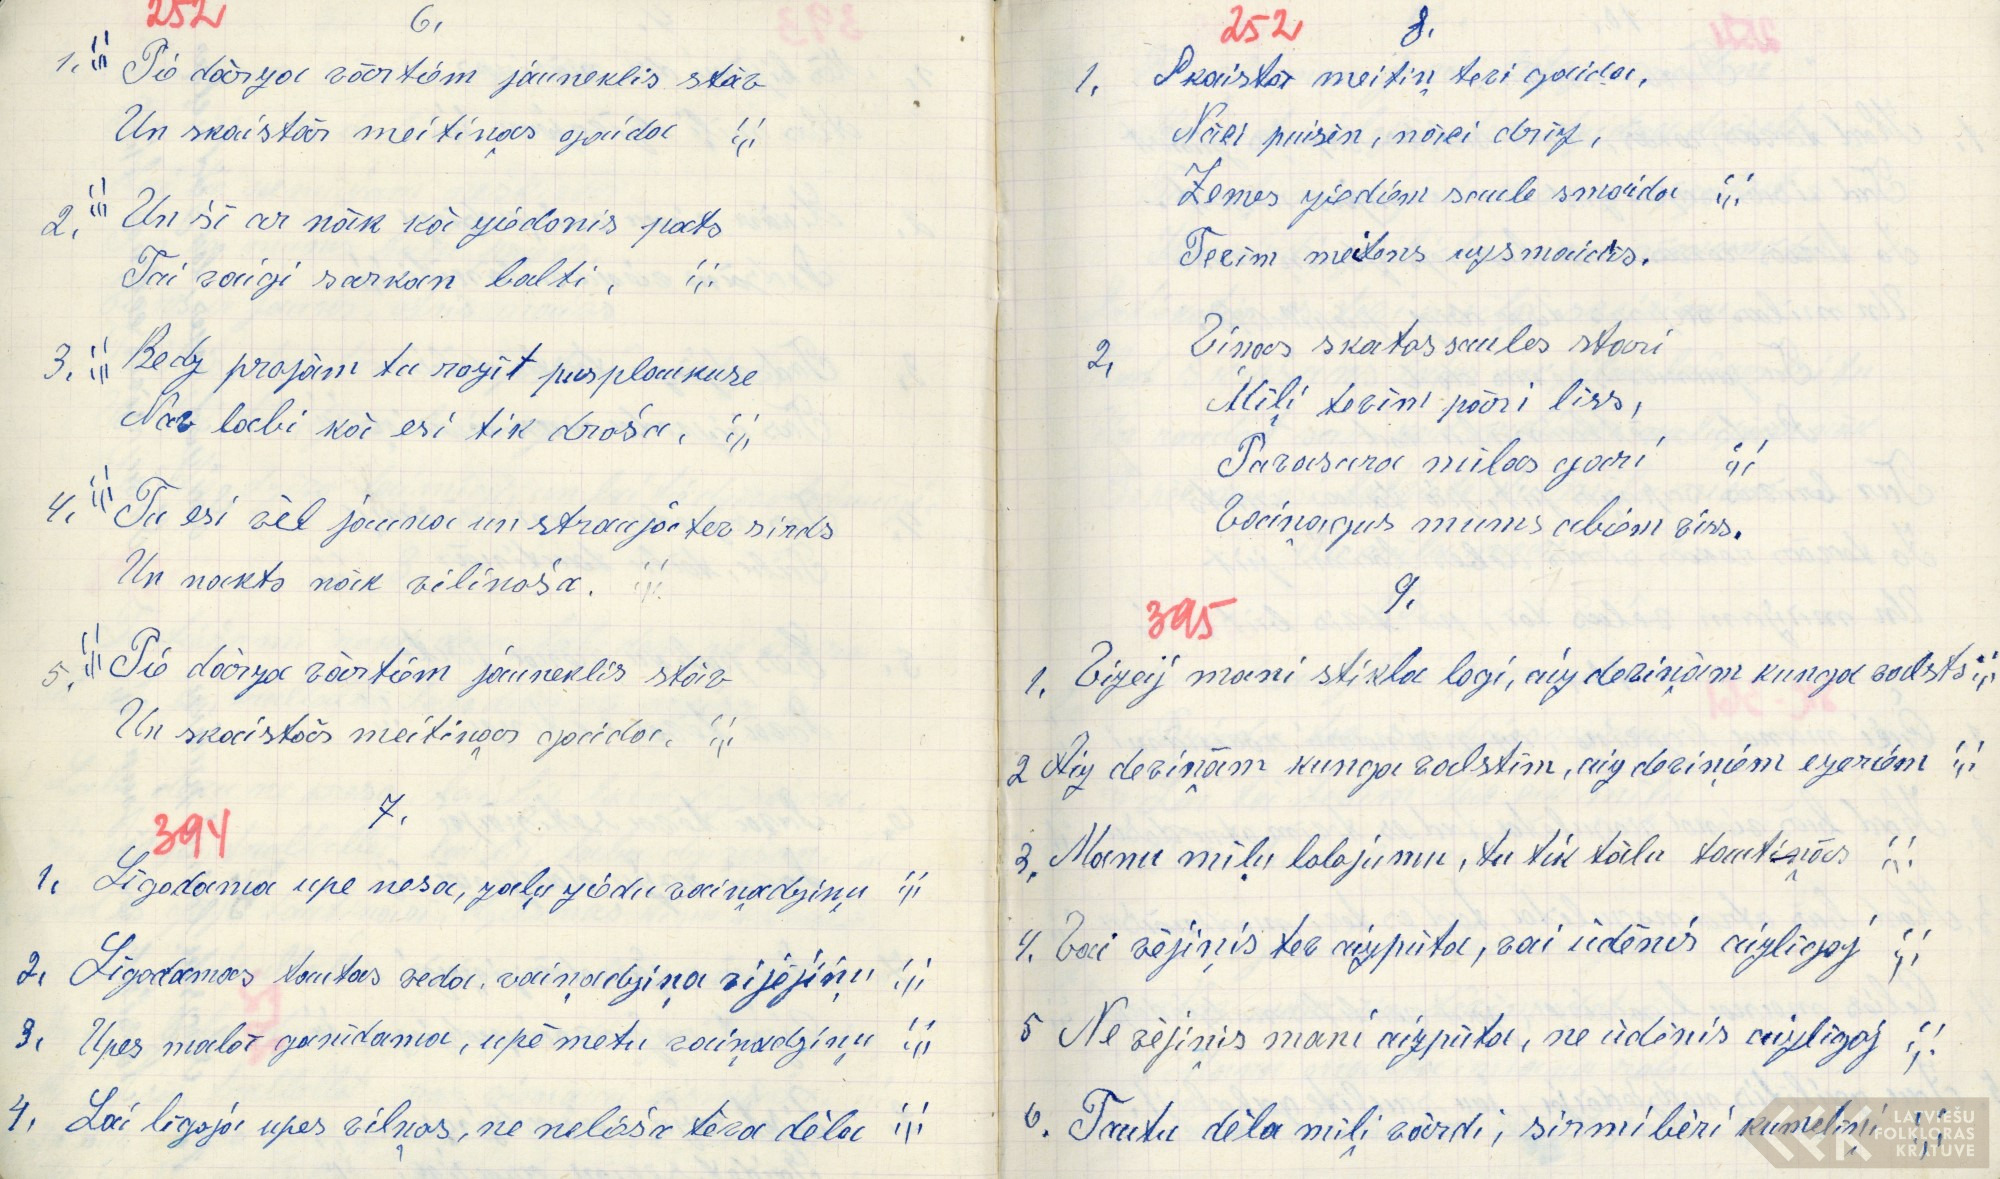 252
6.
1. ;;; Pie dārza vārtiem jauneklis stāv
Un skaistās meitiņas gaida ;;;
2. ;;; Un šī ar nāk kā ziedonis pats
Tai vaigi sarkan balti, ;;;
3. ;;; Bedz projām tu rozīt pusplaukuse
Nav labi kā esi tik droša, ;;;
4. ;;; Tu esi vēl jauna un straujā tev sirds
Un nakts nāk vilinoša. ;;;
5. ;;; Pie dārza vārtiem jauneklis stāv
Un skaistās meitiņas gaida. ;;;
7.
394
1. Līgodama upe nesa, zaļu ziedu vaiņadziņu ;;;
2. Līgodamas tautas veda, vaiņadziņa vijējiņu ;;;
3. Upes malā ganīdama, upē metu vaiņadziņu ;;;
4. Lai līgoja upes vilņos, ne nelieša tēva dēla ;;;
252
8.
1. Skaistā meitiņ tevi gaida,
Nāci puisēn, nāci drīz,
Zemes ziediem saule smaida ;;;
Tevim meitens uzsmaidīs.
2. Viņas skatos saules stari
Mīļi tevim pāri līss,
Pavasara mīlas gari ;;;
Vaiņagus mums abiem viss.
9.
395
1. Vizeij mani stikla logi, aiz deviņām kunga valsts ;;;
2 Aiz deviņām kunga valstīm, aiz deviņiem ezeriem ;;;
3. Manu mīļu lolojumu, tu tik tālu tautiņās ;;;
4. Vai vējiņis tev aizpūta, vai ūdenis aizlīgoj ;;;
5 Ne vējiņis mani aizpūta, ne ūdenis aizlīgoj ;;;
6. Tautu dēla mīļi vārdi, sirmi bēri kumeliņi ;;;
LATVIEŠU
FOLKLORAS
KRĀTUVE